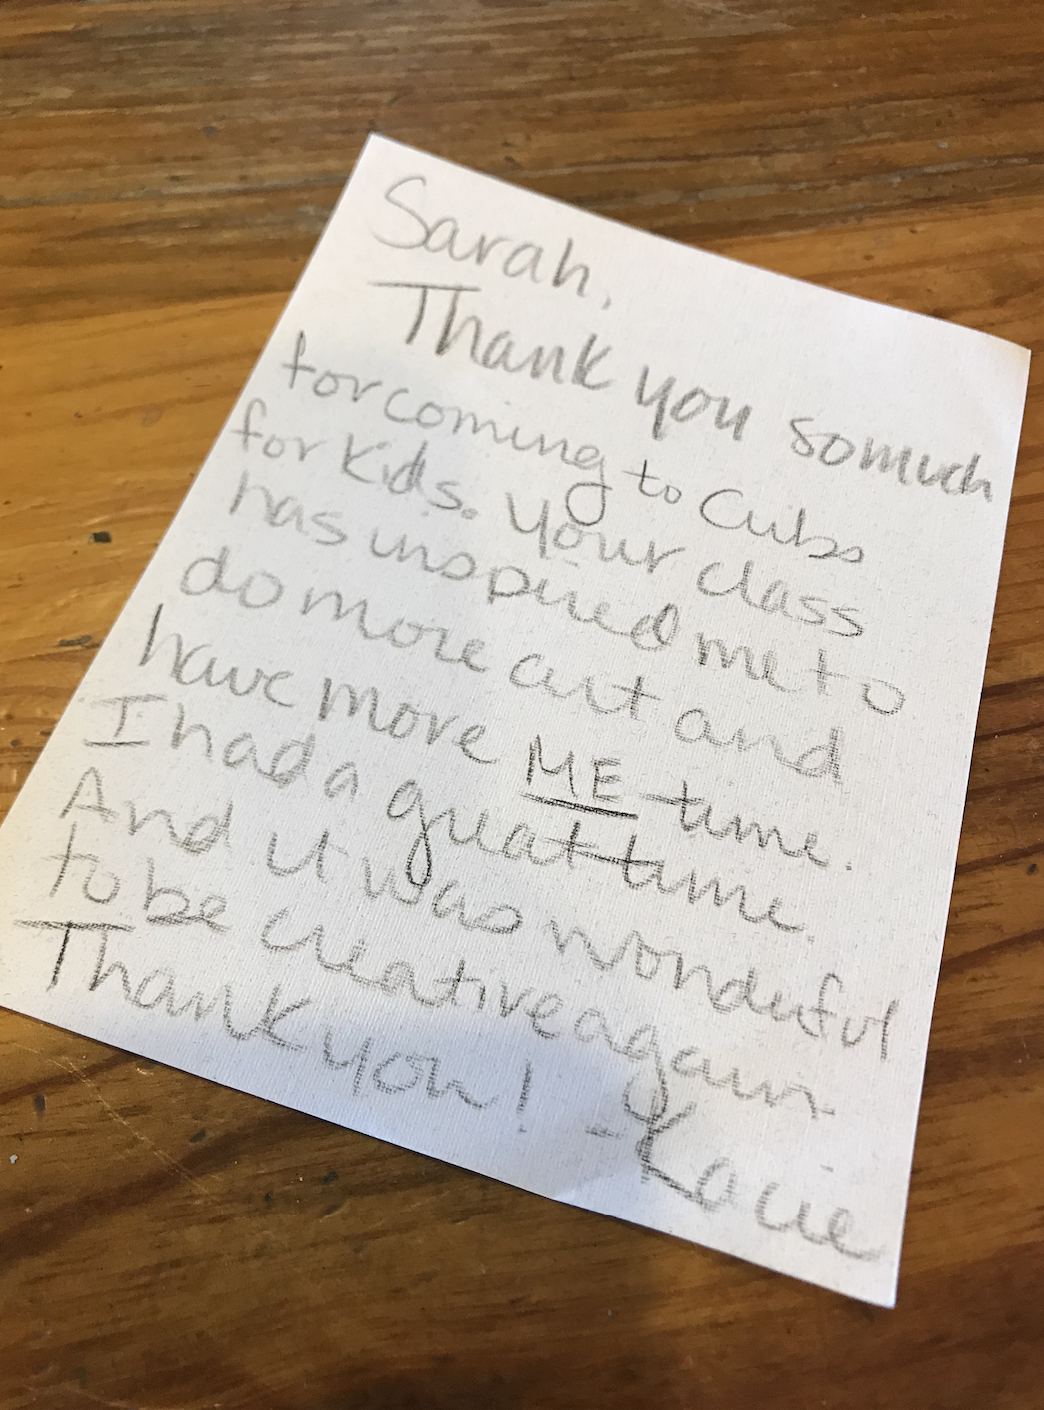 Sarah,
Thank you so much
for coming to Cubs
for Kids. Your class
has inspired me to
do more art and
have more ME time.
I had a great time.
And it was wonderful
to be creative again
Thank you! -Kacie